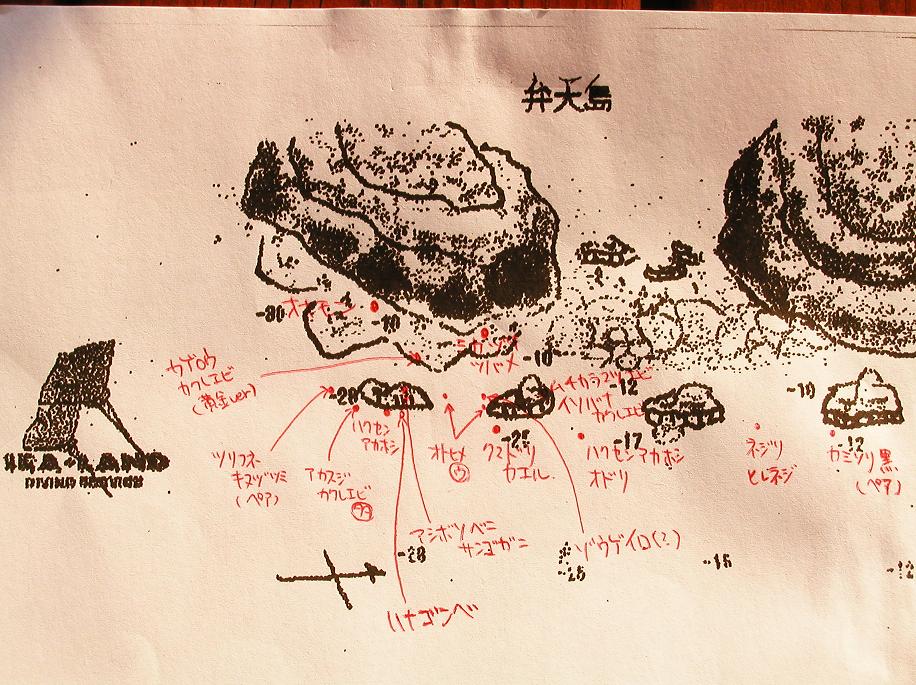 弁天島
-30
オオモンコ
-10
-10
ツバメ
ウイロウ
カクレエビ
(黄金ver)
-20
ムチカラマツエビ
-12
イソバナ
カクレエビ
-10
ハクセン
アカホシ
オトヒメ
ウ
クマドリ
カエル
-25
-17
ハクセンアカホシ
オドリ
ネジツ
ヒレネジ
-12
カミソリ黒
(ペア)
IKA-LAND
DIVING SERVICE
ツリフネ
キヌヅツミ
(ペア)
アカスジ
カクレエビ
アシボソベニ
サンゴガニ
-28
ゾウゲイロ(?)
-25
-15
-12
ハナゴンベ